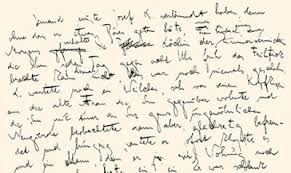 Jemand musste Josef K. verleumdet haben, denn
ohne dass er etwas Böses getan hätte, er eines
Morgens verhaftet. Die Köchin der Zimmervermieterin,
die ihm jeden Tag gegen acht Uhr das Frühstück
brachte kam diesmal nicht. Das war noch niemals geschehen.
K. wartete noch ein Weilchen, sah von seinem Kopfkissen
aus die alte Frau die ihm gegenüber wohnte und
die ihn mit einer an ihr ungewöhnlichen
Neugierde beobachtete, dann aber, gleichzeitig befrem-
det und hungrig, läutete er. Sofort klopfte es
und ein den er in dieser Wohnung noch